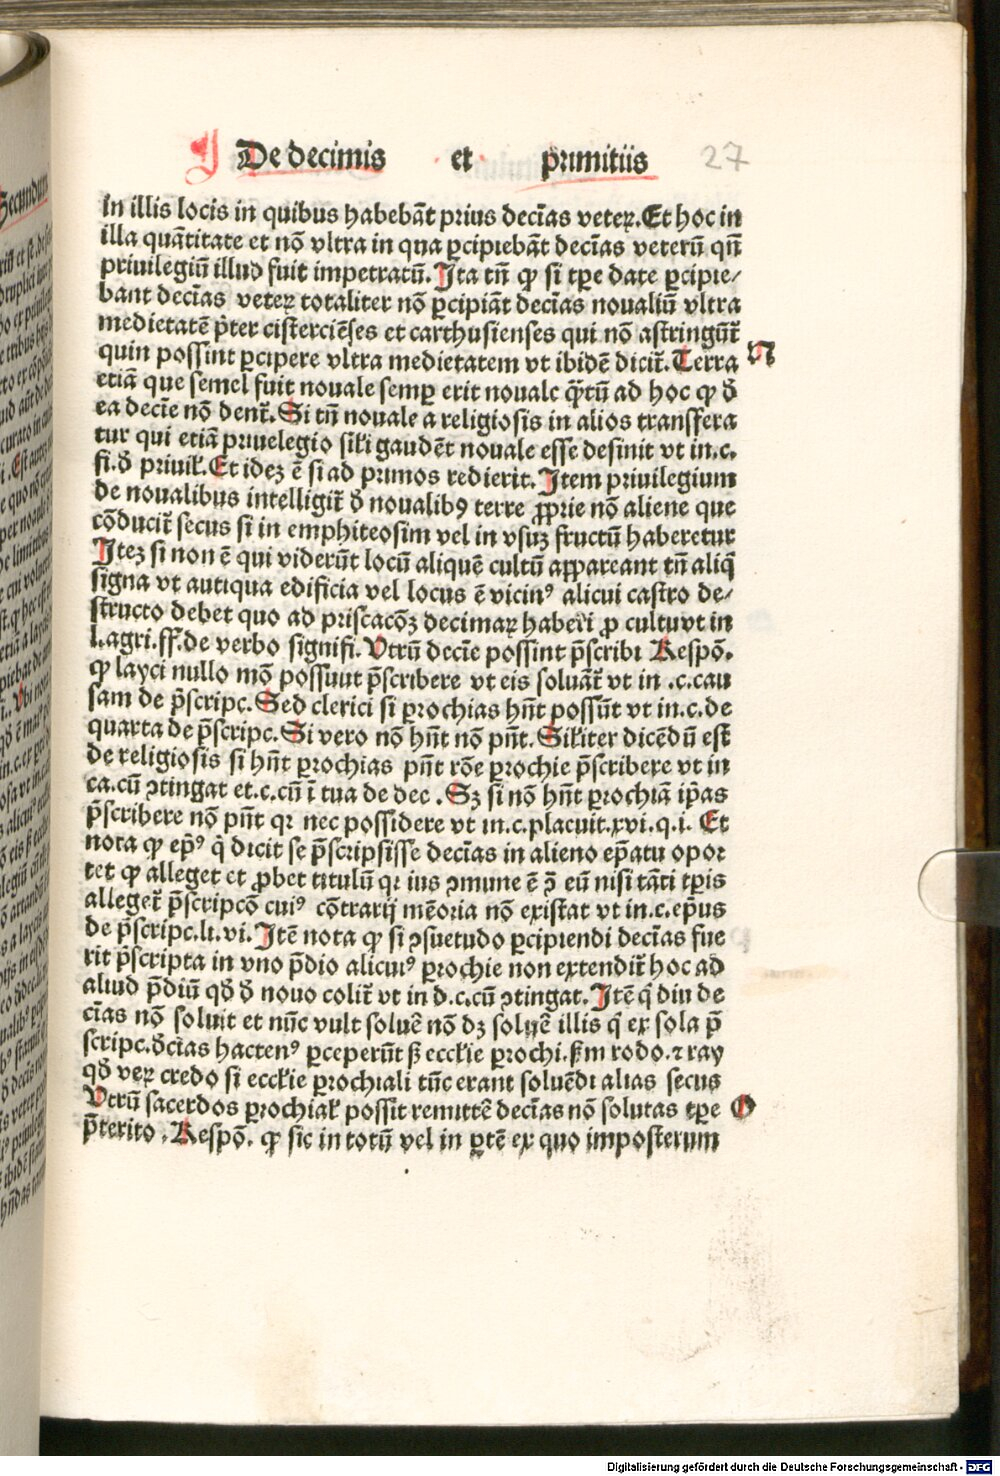 De decimis et primitiis 27
in illis locis in quibus habebāt prius decīas veteꝝ. Et hoc in
illa quātitate et nō vltra in qua ꝑcipiebāt decīas veterū qn̄
priuilegiū illud fuit impetratū. Ita tn̄ ꝙ si tꝑe date ꝑcipie/
bant decīas veteꝝ totaliter nō ꝑcipiāt decīas noualiū vltra
medietatē p̄ter cisterciēses et carthusienses qui nō astringūt᷑
quin possint ꝑcipere vltra medietatem vt ibidē dicit᷑. Terra
N
etiā que semel fuit nouale semꝑ erit nouale q̄tū ad hoc ꝙ ꝺ̄
ea decīe nō dent᷑. Si tn̄ nouale a religiosis in alios transfera
tur qui etiā priuelegio sil̄i gaudēt nouale esse desinit vt in.c.
fi.ꝺ̄ priuil̄. Et idez ē si ad primos redierit. Item priuilegium
de noualibus intelligit᷑ ꝺ̄ noualibꝰ terre ꝓprie nō aliene que
cōducit᷑ secus si in emphiteosim vel in vsuz fructū haberetur
Itez si non ē qui viderūt locū aliquē cultū appareant tn̄ aliq̄
signa vt autiqua edificia vel locus ē vicinꝰ alicui castro de/
structo debet quo ad priscacōz decimaꝝ haberi ꝓ cultuvt in
l.agri.ff.de verbo signifi. Vtrū decīe possint p̄scribi Respō.
ꝙ layci nullo mō possuut p̄scribere vt eis soluāt᷑ vt in .c.cau
sam de p̄scripc. Sed clerici si ꝑrochias hn̄t possūt vt in.c.de
quarta de p̄scripc. Si vero nō hn̄t nō pn̄t. Sil̄iter dicēdū est
de religiosis si hn̄t ꝑrochias pn̄t rōe ꝑrochie p̄scribere vt in
ca.cū ꝯtingat et.c.cū ī tua de dec. Sz si nō hn̄t ꝑrochiā ip̄as
p̄scribere nō pn̄t qꝛ nec possidere vt in.c.placuit.xvi.q.i. Et
nota ꝙ ep̄ꝰ q̇ dicit se p̄scripsisse decīas in alieno ep̄atu opor
tet ꝙ alleget et ꝓbet titulū qꝛ ius ꝯmune ē ꝯ̄ eū nisi tāti tꝑis
alleget᷑ p̄scripcō cuiꝰ cōtrarij mēoria nō existat vt in.c.ep̄us
de p̄scripc.li.vi. Itē nota ꝙ si ꝯsuetudo ꝑcipiendi decīas fue
rit p̄scripta in vno p̄dio alicuiꝰ ꝑrochie non extendit᷑ hoc ad
aliud p̄diū qꝺ̄ ꝺ̄ nouo colit᷑ vt in d.c.cū ꝯtingat. Itē q̇ diu de
cīas nō soluit et nūc vult soluē nō dz soluē illis q̇ ex sola p̄
scripc.ꝺ̄cīas hactenꝰ ꝑceperūt sꝫ eccl̄ie ꝑrochi. ẜm rodo.⁊ ray
qꝺ̄ veꝝ credo si eccl̄ie ꝑrochiali tūc erant soluēdi alias secus
Vtrū sacerdos ꝑrochial̄ possit remittē decīas nō solutas tꝑe
O
p̄terito. Respō. ꝙ sic in totū vel in ꝑtē ex quo imposterum
Digitalisierung gefördert durch die Deutsche Forschungsgemeinschaft - DFG